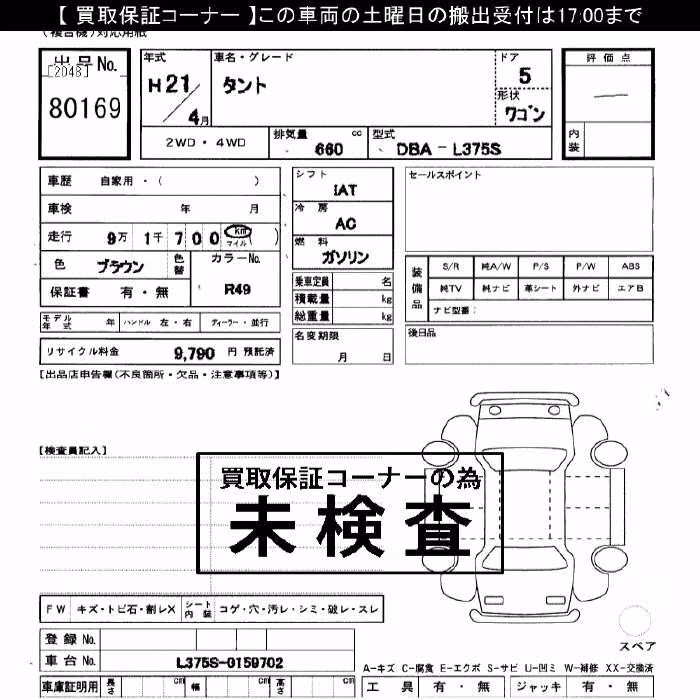 【 買取保証コーナー 】この車両の土曜日の搬出受付は17:00まで
(複合機)対応用紙
出品No.
[2048]
80169
年式
H21/4月
車名・グレード
タント
ドア
5
形状
ワゴン
評価点
内装
2WD・4WD
排気量 cc
660
型式
DBA-L375S
車歴 自家用・( )
車検 年 月
走行 9万 1千 7 0 0 km マイル ( )
色 ブラウン 色替
カラーNo.
R49
保証書 有・無
シフト
IAT
冷房
AC
燃料
ガソリン
乗車定員 名
積載量 kg
総重量 kg
セールスポイント
装備品
S/R 純A/W P/S P/W ABS
純TV 純ナビ 革シート 外ナビ エアB
ナビ型番:
モデル年式 年 ハンドル 左・右 ディーラー・並行
名変期限
月 日
後日品
リサイクル料金 9,790 円 預託済
【出品店申告欄(不良箇所・欠品・注意事項等)】
【検査員記入】
買取保証コーナーの為
未検査
FW キズ・トビ石・割レX シート内装 コゲ・穴・汚レ・シミ・破レ・スレ
登録No.
車台No. L375S-0159702
スペア
A-キズ C-腐食 E-エクボ S-サビ U-凹ミ W-補修 XX-交換済
車庫証明用 長さ cm 幅 cm 高さ cm
工具 有・無 ジャッキ 有・無